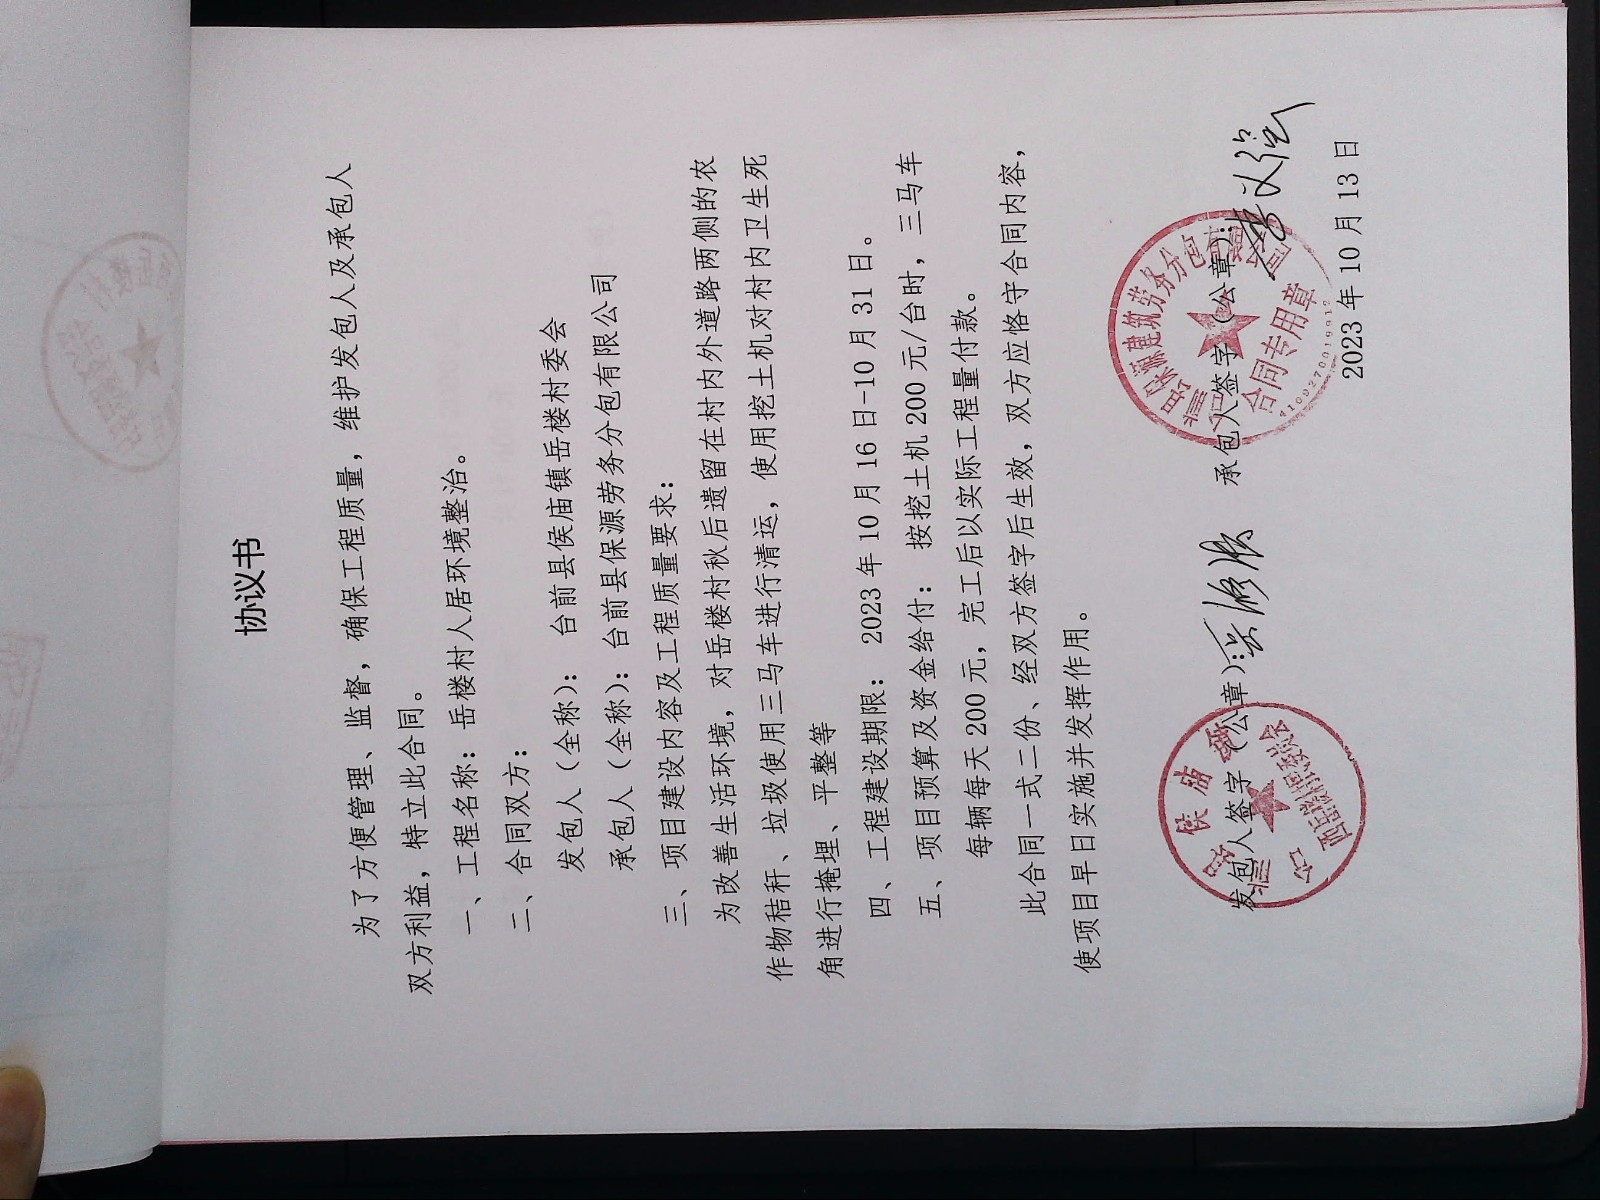 协议书
为了方便管理、监督，确保工程质量，维护发包人及承包人
双方利益，特立此合同。
一、工程名称：岳楼村人居环境整治。
二、合同双方：
发包人（全称）：台前县侯庙镇岳楼村委会
承包人（全称）：台前县保源劳务分包有限公司
三、项目建设内容及工程质量要求：
为改善生活环境，对岳楼村秋后遗留在村内外道路两侧的农
作物秸秆、垃圾使用三马车进行清运，使用挖土机对村内卫生死
角进行掩埋、平整等
四、工程建设期限：2023年10月16日-10月31日。
五、项目预算及资金给付：按挖土机200元/台时，三马车
每辆每天200元，完工后以实际工程量付款。
此合同一式二份、经双方签字后生效，双方应恪守合同内容，
使项目早日实施并发挥作用。
发包人签字（公章）： 承包人签字（公章）：
保源建筑劳务分包有限公司
合同专用章
4109270019912
2023年10月13日